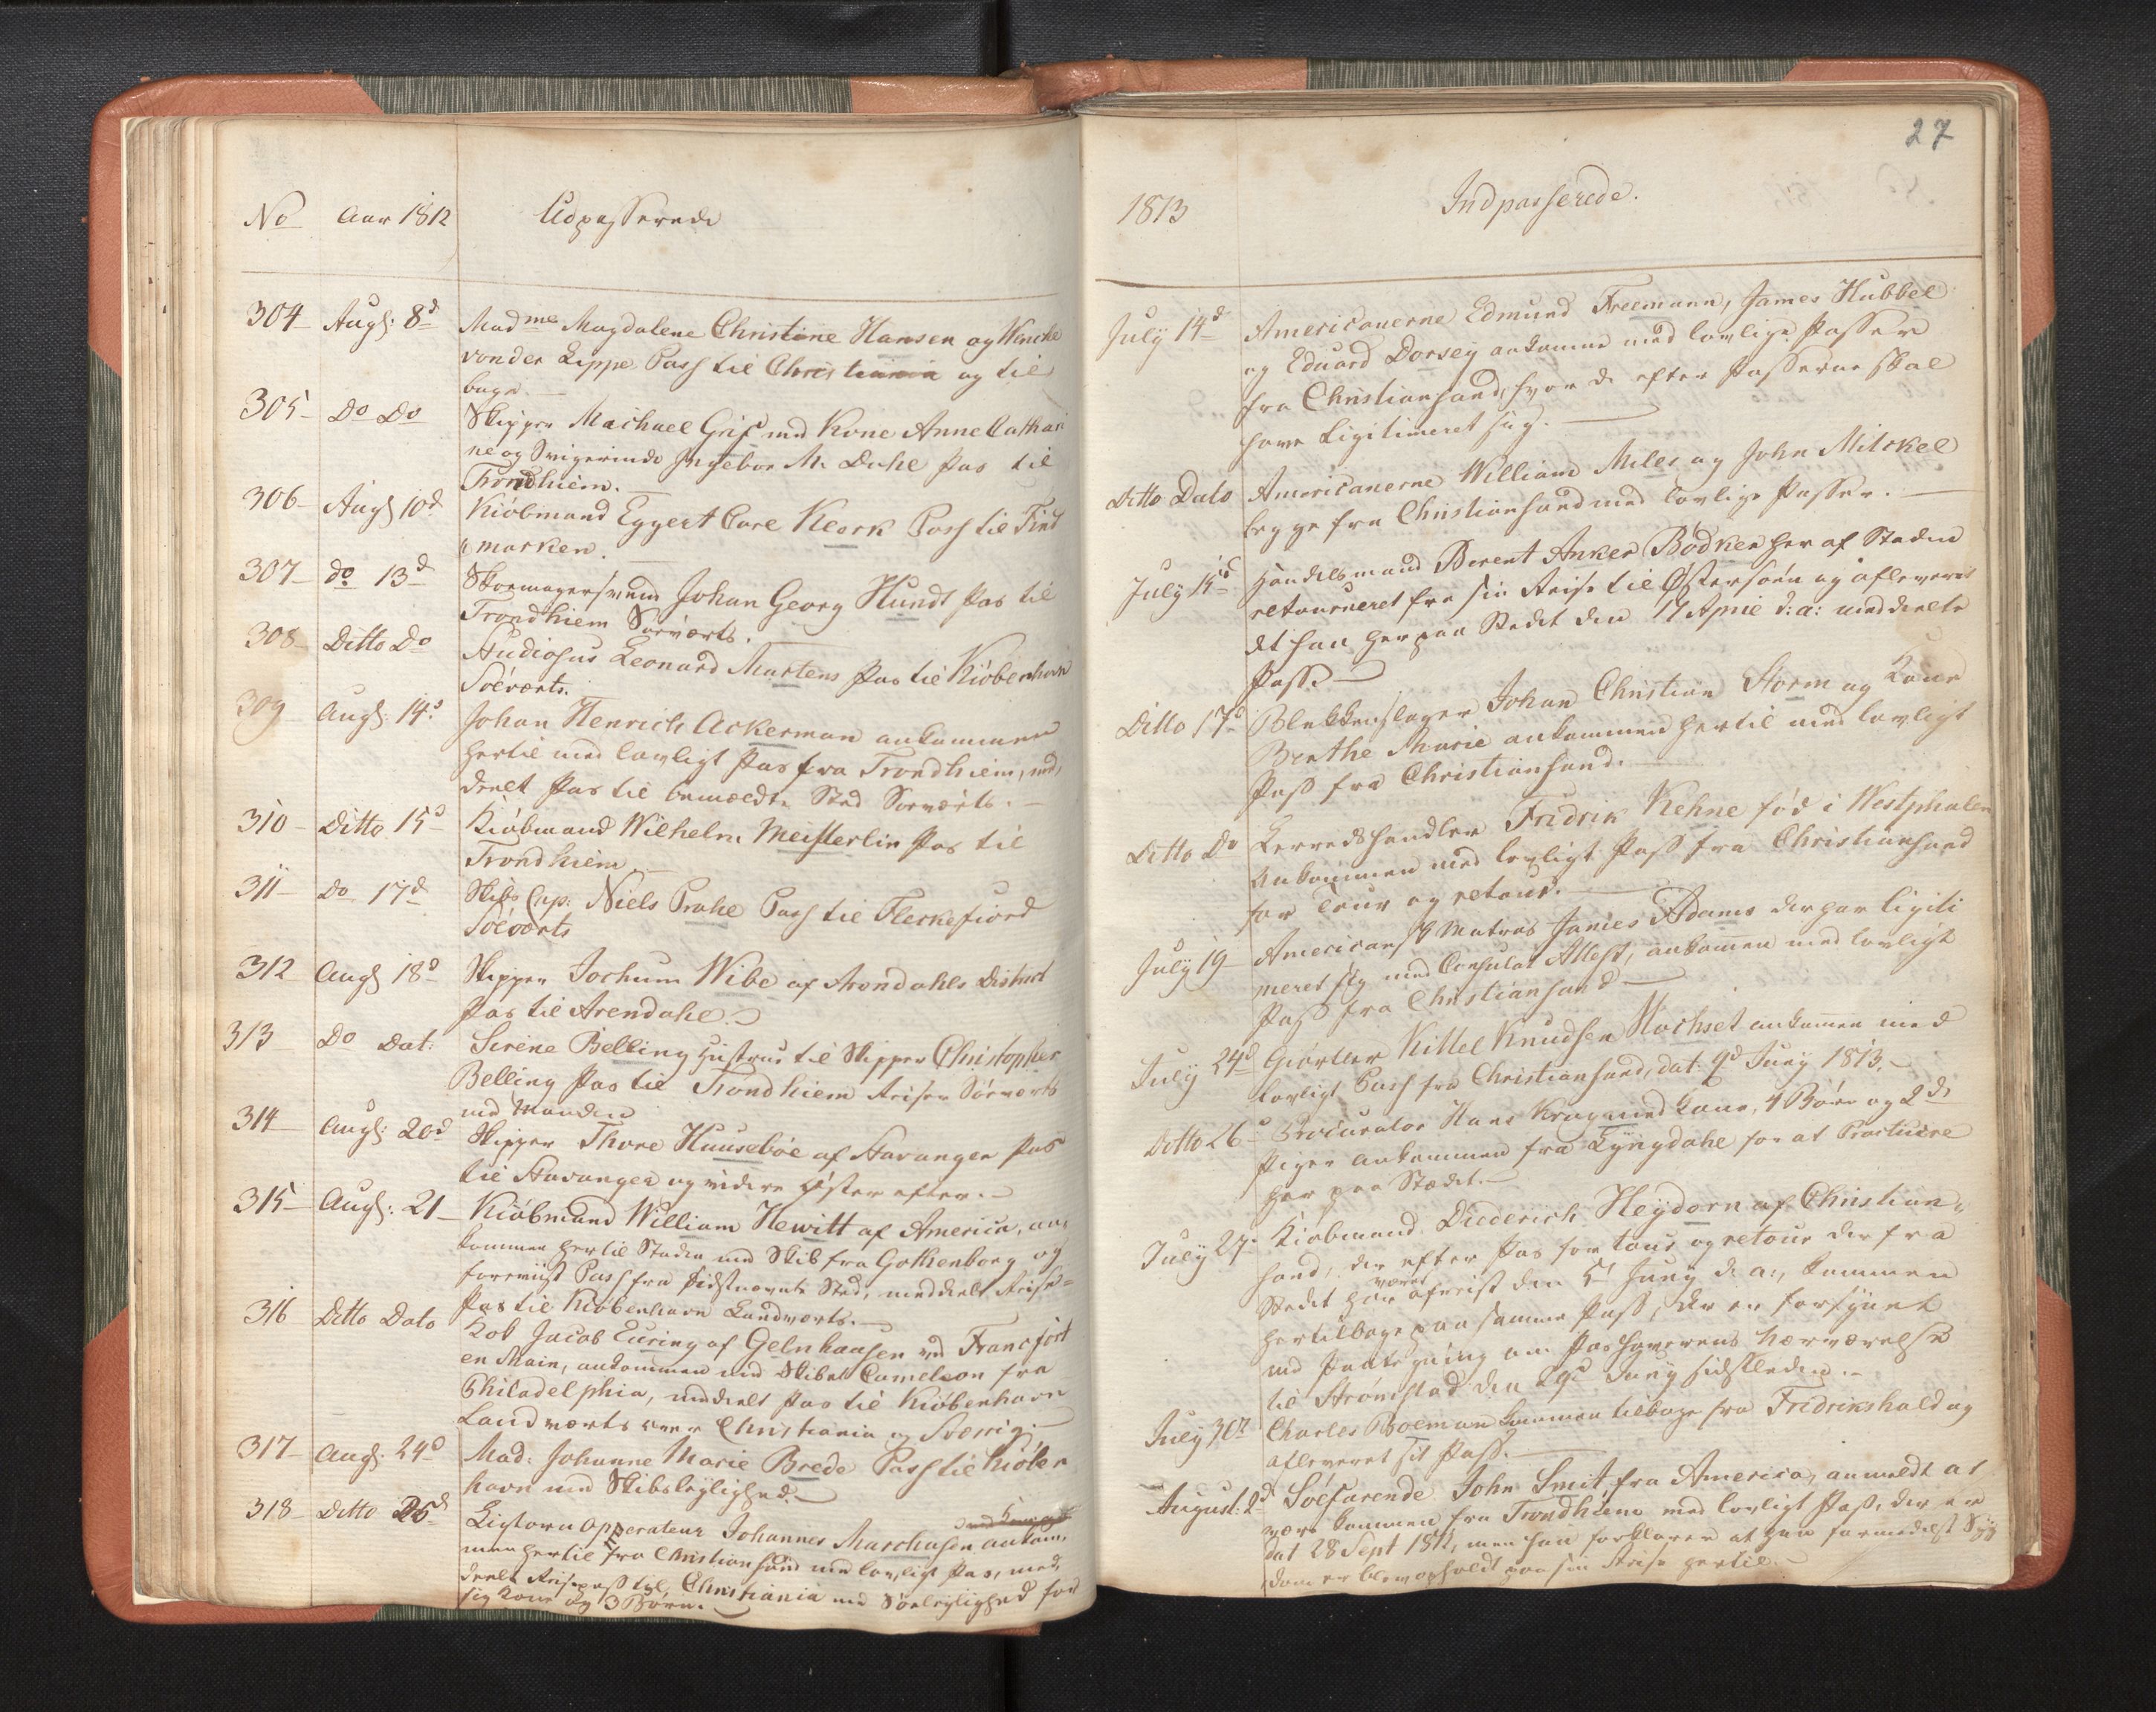 No Aar 1812 Udpasserede
304 Augs: 8d Madme Magdalene Christine Hansen og Wencke
vonder Lippe Pass til Christiania og til
bage.
305 Do Do Skipper Machael Grif med Kone Anne Cathari
ne og Svigerinde Ingebor M. Dahl Pas til
Trondhiem.
306 Augs 10d Kiöbmand Eggert Carl Klerk Pass til Find
marken.
307 do 13d Skomagersvend Johan Georg Hundt Pas til
Trondhiem Söeværts.
308 Ditto Do Studiosus Leonard Martens Pas til Kiöbenhavn
Söeværts.
309 Augs: 14d Johan Henrich Ackerman ankommen
hertil med lovligt Pas fra Trondhiem, med
deelt Pas til bemældte Sted Söeværts.
310 Ditto 15d Kiöbmand Wilhelm Meisterlin Pas til
Trondhiem
311 Do 17d Skibs Cap: Niels Prahl Pass til Fleckefiord
Söeværts
312 Augs 18d Skipper Jochum Wibe af Arendahls District
Pas til Arendahl.
313 Do Dat: Sirine Belling Hustrue til Skipper Christopher
Belling Pas til Trondhiem Reiser Söeværts
med Manden
314 Augs: 20d Skipper Thore Huuseböe af Stavanger Pas
til Stavanger og videre Öster efter.
315 Augs: 21 Kiöbmand William Hewitt af America, an
kommen hertil Staden med Skib fra Gothenborg og
foreviist Pass fra sidstnævnte Sted, meddeelt Reise=
Pas til Kiöbenhavn Landværts.
316 Ditto Dato Kob Jacob Euring af Gelnhausen ved Francfort
en Main, ankommen med Skibet Cameleon fra
Philadelphia, meddeelt Pas til Kiöbenhavn
Landværts over Christiania og Sverrig
317 Augs: 24d Mad: Johanne Marie Brede Pass til Kiöben
havn med Skibsleylighed.
318 Ditto 25d Ligtorn Opperateur Johannes Marchusen ankom,
men hertil fra Christianssand med lovligt Pas, med,
deelt Reisepass til Christiania med Söeleylighed for
sig Kone og 3 Börn.
27
1813 Indpasserede.
July 14d Americanerne Edmund Freemann, James Hubbel
og Eduard Dorsey ankomne med lovlige Passer
fra Christiansand, hvor de efter Passerne skal
have Ligitimeret sig.
Ditto Dato Americanerne William Miles og John Mitskel
begge fra Christiansand med lovlige Passer.
July 15d Handelsmand Berent Anker Bödker her af Staden
retourneret fra sin Reise til Östersöen og afleveret
det ham her paa Stedet den 17 April d: a: meddeelte
Pass.
Ditto 17d Blekkenslager Johan Christian Storm og Kone
Berthe Marie ankommen hertil med lovligt
Pass fra Christiansand.
Ditto Do Lerredshandler Fridrik Kehne föd i Westphalen
Ankommen med lovligt Pass fra Christiansand
for Tour og retour.
July 19 Americansk Matros James Adams der har Ligiti
meret sig med Consulat Attest, ankommen med lovligt
Pass fra Christiansand
July 24d Giörtler Kittel Knudsen Hochset ankommen med
lovligt Pass fra Christiansand, dat: 9d Juny 1813.
Ditto 26d Procurator Hans Krag med Kone, 4 Börn og 2de
Piger ankommen fra Lyngdahl for at Practicere
her paa Stædet.
July 27 Kiöbmand Diederich Heydorn af Christian,,
sand, der efter Pas for tour og retour der fra
Stedet har været afreist den 5 Juny d. a:, kommen
her tilbage paa samme Pass, der er forsÿnet
med Paategning om Pashaverens Nærværelse
til Strömstad den 29d Juny sidstleden.
July 30d Charles Boeman kommen tilbage fra Fridrikshald og
afleveret sit Pass.
August: 2d Söefarende John Smit, fra America, anmeldt at
være kommen fra Trondhiem med lovligt Pass, der er
dat 28 Sept 1812, men han forklarer at han formedelst Syg
dom er blev opholdt paa sin Reise hertil.